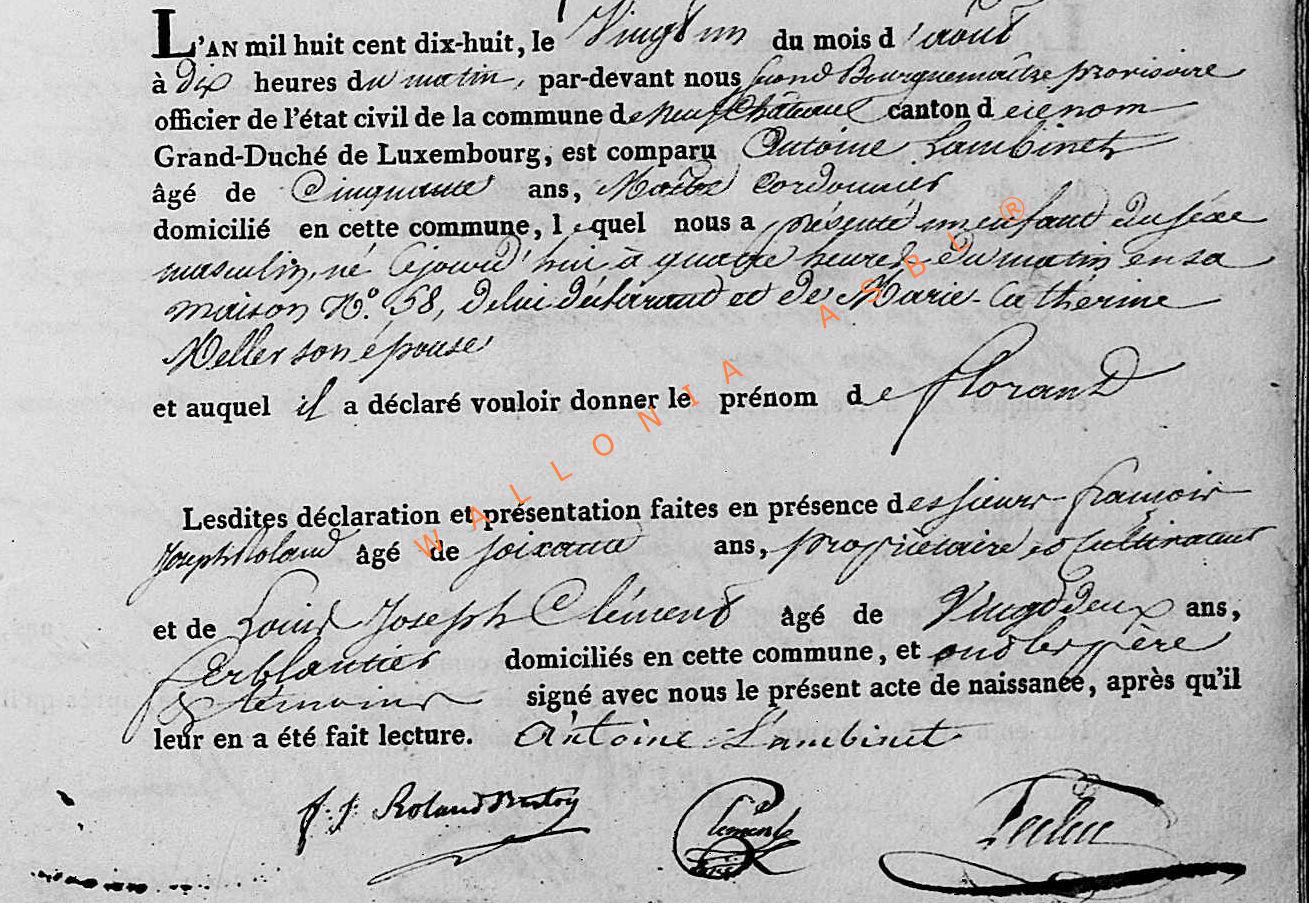 L'AN mil huit cent dix-huit, le Vingt un du mois d'août
à dix heures du matin, par-devant nous Second Bourguemaître provisoire
officier de l'état civil de la commune de Neufchâteau canton d e ce nom
Grand-Duché de Luxembourg, est comparu Antoine Lambinet
âgé de Cinquante ans, Maître Cordonnier
domicilié en cette commune, lequel nous a présenté un enfant du séxe
masculin, né cejourd'hui à quatre heures du matin en sa
maison N.º 58, de lui déclarant et de Marie-Catherine
Meller son épouse
et auquel il a déclaré vouloir donner le prénom de florand
Lesdites déclaration et présentation faites en présence des sieurs françois
Joseph Roland âgé de soixante ans, propriétaire et Cultivateur
et de Louis Joseph Clément âgé de Vingt deux ans,
ferblantier domiciliés en cette commune, et ont les père
& témoins signé avec nous le présent acte de naissance, après qu'il
leur en a été fait lecture. Antoine Lambinet
f. J. Roland Clément
WALLONIA ASBL ®